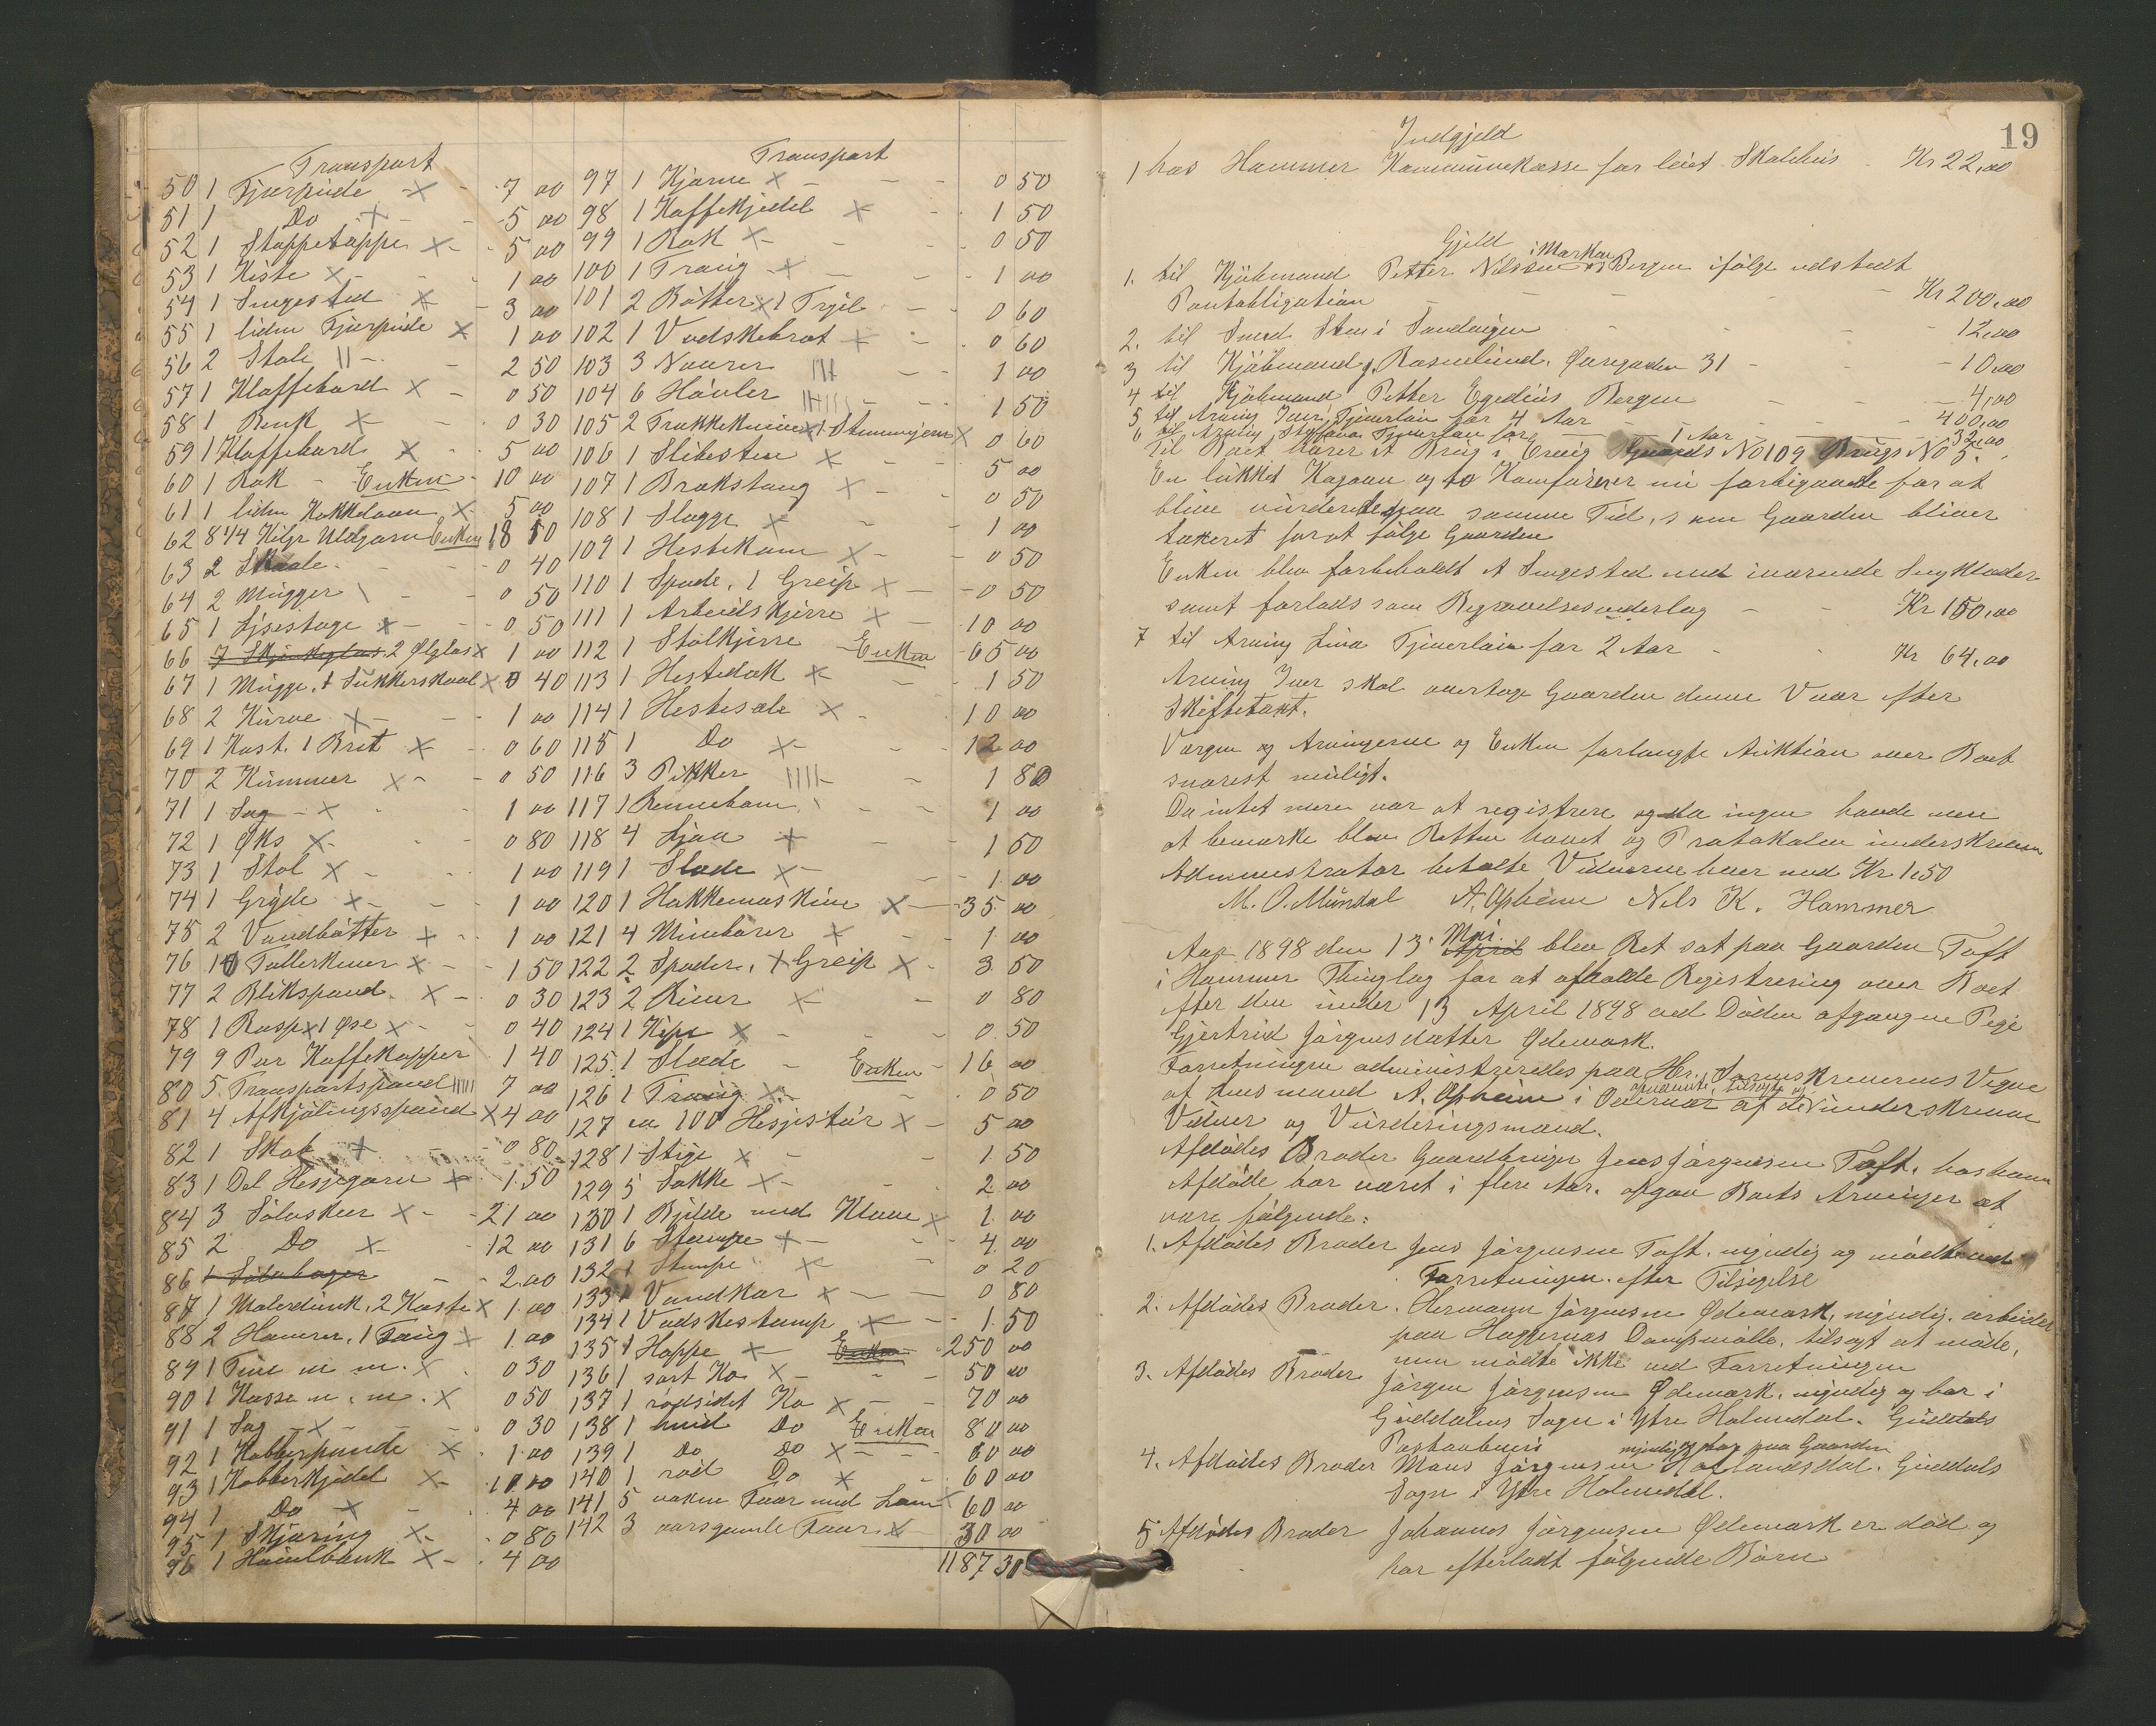 Transport
50 1 Fjærpude 7 00
51 1 Do 5 00
52 1 Stoppetæppe 5 00
53 1 Kiste 1 00
54 1 Sengested 3 00
55 1 liden Fjærpude 1 00
56 2 Stole 2 50
57 1 Klaffebord 0 50
58 1 Benk 0 30
59 1 Klaffebord 5 00
60 1 Rok Enken 10 00
61 1 liden Kakkelovn 5 00
62 8 1/4 Kilgr Uldgarn Enken 18 50
63 2 Skaale 0 40
64 2 Mugger 0 50
65 1 Lysestage 0 50
66 7 Skjænkeglas. 2 Ølglas 1 00
67 1 Mugge, 1 Sukkerskaal 0 40
68 2 Kurve 1 00
69 1 Kost. 1 Bret 0 60
70 2 Kummer 0 50
71 1 Sag 1 00
72 1 Øks 0 80
73 1 Stol 1 00
74 1 Gryde 1 00
75 2 Vandbøtter 1 00
76 10 Tallerkener 1 50
77 2 Blikspand 0 30
78 1 Rasp 1 Øse 0 40
79 9 Par Kaffekopper 1 40
80 5 Transportspand 7 00
81 4 Afkjølingsspand 4 00
82 1 Skab 0 80
83 1 Del Hesjegarn 1.50
84 3 Sølvskeer 21 00
85 2 Do 12 00
86 1 Sølvbæger 2.00
87 1 Malerdunk, 2 Koste 1 00
88 2 Hamrer. 1 Tang 1.00
89 1 Tine m. m. 0 30
90 1 Kasse m. m. 0 50
91 1 Sag 0 30
92 1 Kobberpande 1.00
93 1 Kobberkjedel 10 00
94 1 Do 4 00
95 1 Skjæring 0 80
96 1 Høvelbænk 4 00
Transport
97 1 Kjærne 0 50
98 1 Kaffekjedel 1 50
99 1 Rok 0 50
100 1 Traug 1 00
101 2 Bøtter 1 0 60
102 1 Vadskebræt 0 60
103 3 Navrer 1 00
104 6 Høvler 1 50
105 2 1 Stemmejern 0 60
106 1 Slibesten 5 00
107 1 Brækstang 0 50
108 1 Slægge 1 00
109 1 Hestekam 0 50
110 1 Spade, 1 Greip 0 50
111 1 Arbeidskjærre 10 00
112 1 Stolkjærre Enken 65 00
113 1 Hestedæk 1 50
114 1 Hestesele 10 00
115 1 Do 12 00
116 3 Pikker 1 80
117 1 Rennebom 1 00
118 4 Ljaa 1 50
119 1 Slæde 1 00
120 1 Hakkemaskine 35 00
121 4 Minebører 1 00
122 2 Spader, 1 Greip 3 50
123 2 River 0 80
124 1 Kipe 0.50
125 1 Slæde Enken 16 00
126 1 Traug 0 50
127 ca 100 Hesjestør 5 00
128 1 Stige 1 50
129 5 Sække 2 00
130 1 Bjelde med Klave 1 00
131 6 Stampe 4 00
132 1 Stampe 0 20
133 1 Vandkar 0 80
134 1 Vadskestamp 1.50
135 1 Hoppe Enken 250 00
136 1 sort Ko 50 00
137 1 rødsidet Ko 70 00
138 1 hvid Do Enken 80 00
139 1 Do Do 60 00
140 1 rød Do 60 00
141 5 voksne Faar med Lam 60 00
142 3 aarsgamle Faar 30 00
1187 30
19
Indgjeld
1 hos Hammer Kommunekasse for leiet Skolehus Kr 22,00
Gjeld
1. til Kjøbmand Petter Nilssen i Marken Bergen ifølge udstedt
Pantobligation Kr 200,00
2. til Smed Sten i Sandvigen 12,00
3 til Kjøbmand J. Rasmelund. Øvregaden 31 10,00
4 til Kjøbmand Petter Egedius Bergen 4,00
5 til Arving Iver Tjoverlain for 4 Aar 400,00
6 til Arving Tjoverlain for 1 Aar 32,00
Til Boet hører et Brug i Gaards No 109 Brugs No 5.
En lukket Kagovn og to Komfurer nu forbigaaede for at
blive vurderede paa samme Tid, som Gaarden bliver
takseret for at følge Gaarden
Enken blev forbeholdt et Sengested med iværende Sengklæder
samt forlods som Begravelsesvederlag Kr 150,00
7 til Arving Lina Tjoverlain for 2 Aar Kr 64,00
Arving Iver skal overtage Gaarden denne Vaar efter
Skiftetaxt.
Værgen og Arvingerne og Enken forlangte Auktion over Boet
snarest muligt.
Da intet mere var at registrere og da ingen havde mere
at bemærke blev Retten hævet og Protokolen underskreven
Administrator betalte Vidnerne hver med Kr 1.50
M. O. Mundal A. Opheim Nils K. Hammer
Aar 1898 den 13. April Mai. blev Ret sat paa Gaarden Toft
i Hammer Thinglag for at afholde Registrering over Boet
efter den under 13 April 1898 ved Døden afgangne Pige
Gjertrud Jørgensdatter Ødemark.
Forretningen administreredes paa Hr. Sorenskriverens Vegne
af Lensmand A. Opheim i Overvær af de underskrevne
Vidner og Vurderingsmænd.
Afdødes Broder Gaardbruger Jens Jørgensen Toft, hos ham
Afdøde har været i flere Aar. opgav Boets Arvinger at
være følgende:
1. Afdødes Broder Jens Jørgensen Toft. myndig og mødte ved
Forretningen efter Tilsigelse
2. Afdødes Broder. Hermann Jørgensen Ødemark, myndig. arbeider
paa Haggernæs Dampmølle, tilsagt at møde,
men mødte ikke ved Forretningen
3. Afdødes Broder Jørgen Jørgensen Ødemark. myndig og bor i
Guddalens Sogn i Ytre Holmedal. Guddals
Postaabneri
4. Afdødes Broder Mons Jørgensen myndig og bor paa Gaarden Hovlandsdal. Guddals
Sogn i Ytre Holmedal.
5 Afdødes Broder Johannes Jørgensen Ødemark er død og
har efterladt følgende Børn